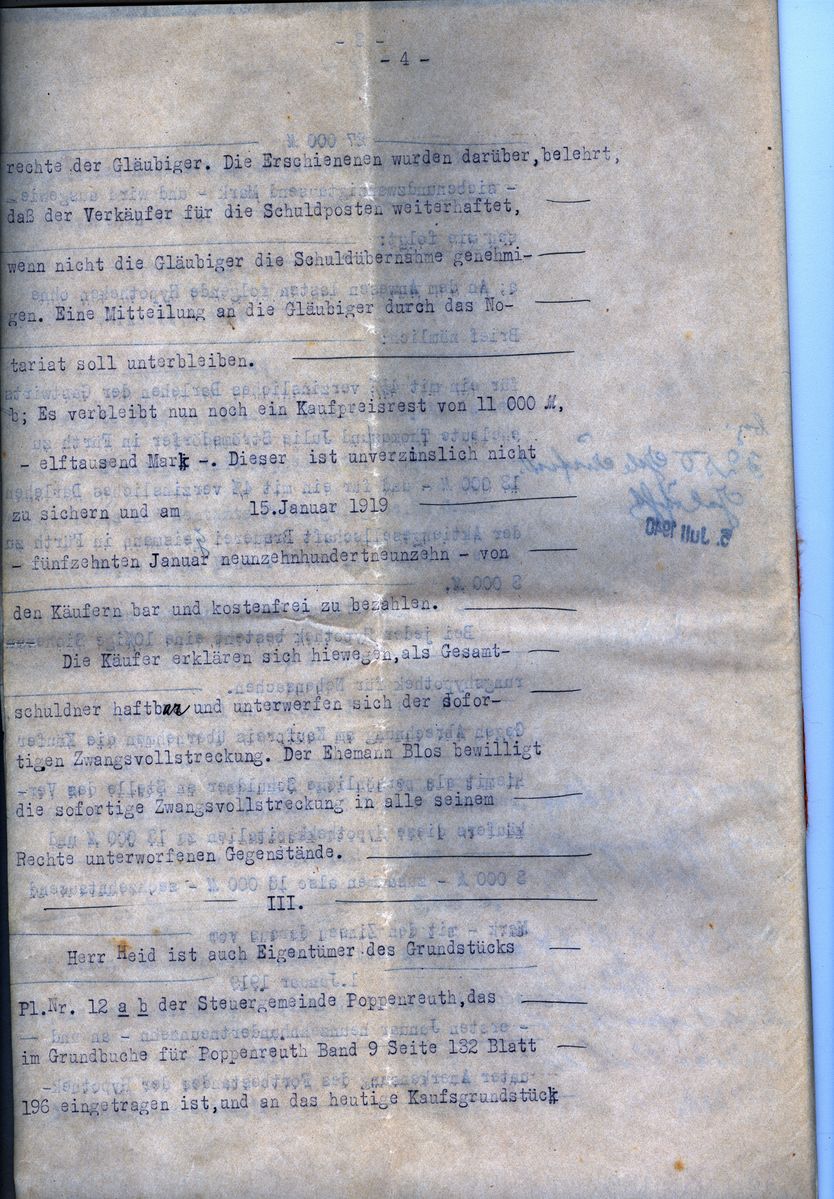 - 4 -
rechte der Gläubiger. Die Erschienenen wurden darüber, belehrt,
daß der Verkäufer für die Schuldposten weiterhaftet,
wenn nicht die Gläubiger die Schuldübernahme genehmi-
gen. Eine Mitteilung an die Gläubiger durch das No-
tariat soll unterbleiben.
b; Es verbleibt nun noch ein Kaufpreisrest von 11 000 M,
- elftausend Mark -. Dieser ist unverzinslich nicht
zu sichern und am 15.Januar 1919
- fünfzehnten Januar neunzehnhundertneunzehn - von
den Käufern bar und kostenfrei zu bezahlen.
Die Käufer erklären sich hiewegen,als Gesamt-
schuldner haftbar und unterwerfen sich der sofor-
tigen Zwangsvollstreckung. Der Ehemann Blos bewilligt
die sofortige Zwangsvollstreckung in alle seinem
Rechte unterworfenen Gegenstände.
III.
Herr Heid ist auch Eigentümer des Grundstücks
Pl.Nr. 12 a b der Steuergemeinde Poppenreuth,das
im Grundbuche für Poppenreuth Band 9 Seite 132 Blatt
196 eingetragen ist,und an das heutige Kaufsgrundstück
5. Juli 1940